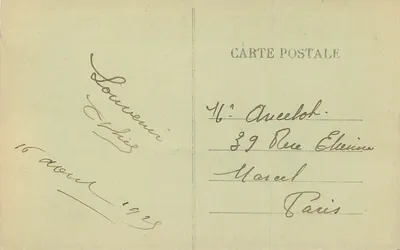 Souvenir
16 août 1925
CARTE POSTALE
Mr. Ancelot.
39 Rue Etienne
Marcel
Paris